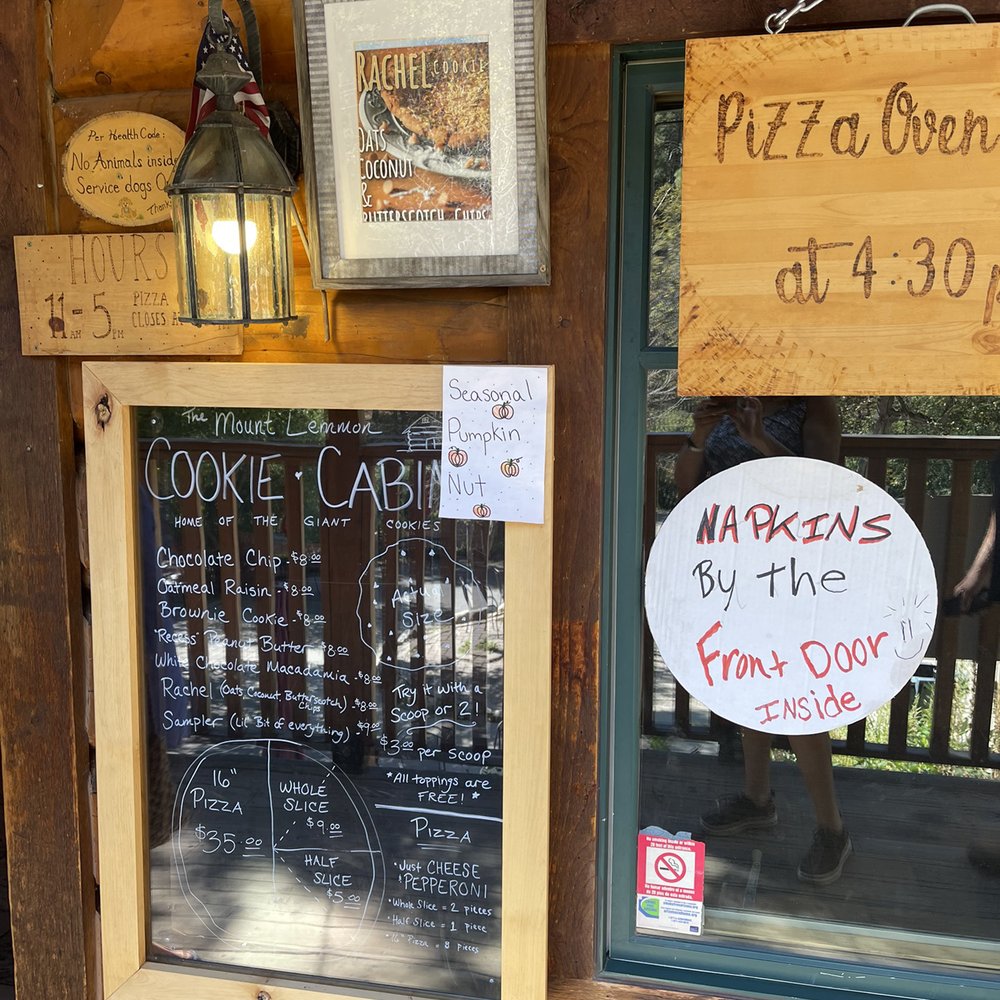 Per Health Code:
No Animals inside
Service dogs
Thank
HOURS
11 AM - 5 PM
PIZZA
CLOSES
RACHEL COOKIE
OATS
COCONUT
&
BUTTERSCOTCH CHIPS
Pizza Oven
at 4:30
Seasonal
Pumpkin
Nut
The Mount Lemmon
COOKIE · CABIN
HOME OF THE GIANT COOKIES
Chocolate Chip - $8.00
Oatmeal Raisin - $8.00
Brownie Cookie - $8.00
"Recess" Peanut Butter - $8.00
White Chocolate Macadamia - $8.00
Rachel (Oats, Coconut, Butterscotch Chips) - $8.00
Sampler (Lil' Bit of everything) $9.00
Actual
Size
Try it with a
Scoop or 2!
$3.00 per scoop
*All toppings are
FREE! *
16"
PIZZA
$35.00
WHOLE
SLICE
$9.00
HALF
SLICE
$5.00
PIZZA
• Just CHEESE
& PEPPERONI
• Whole Slice = 2 pieces
• Half Slice = 1 piece
• 16" Pizza = 8 pieces
NAPKINS
By the
Front Door
INSide
No smoking inside or within
20 feet of this entrance.